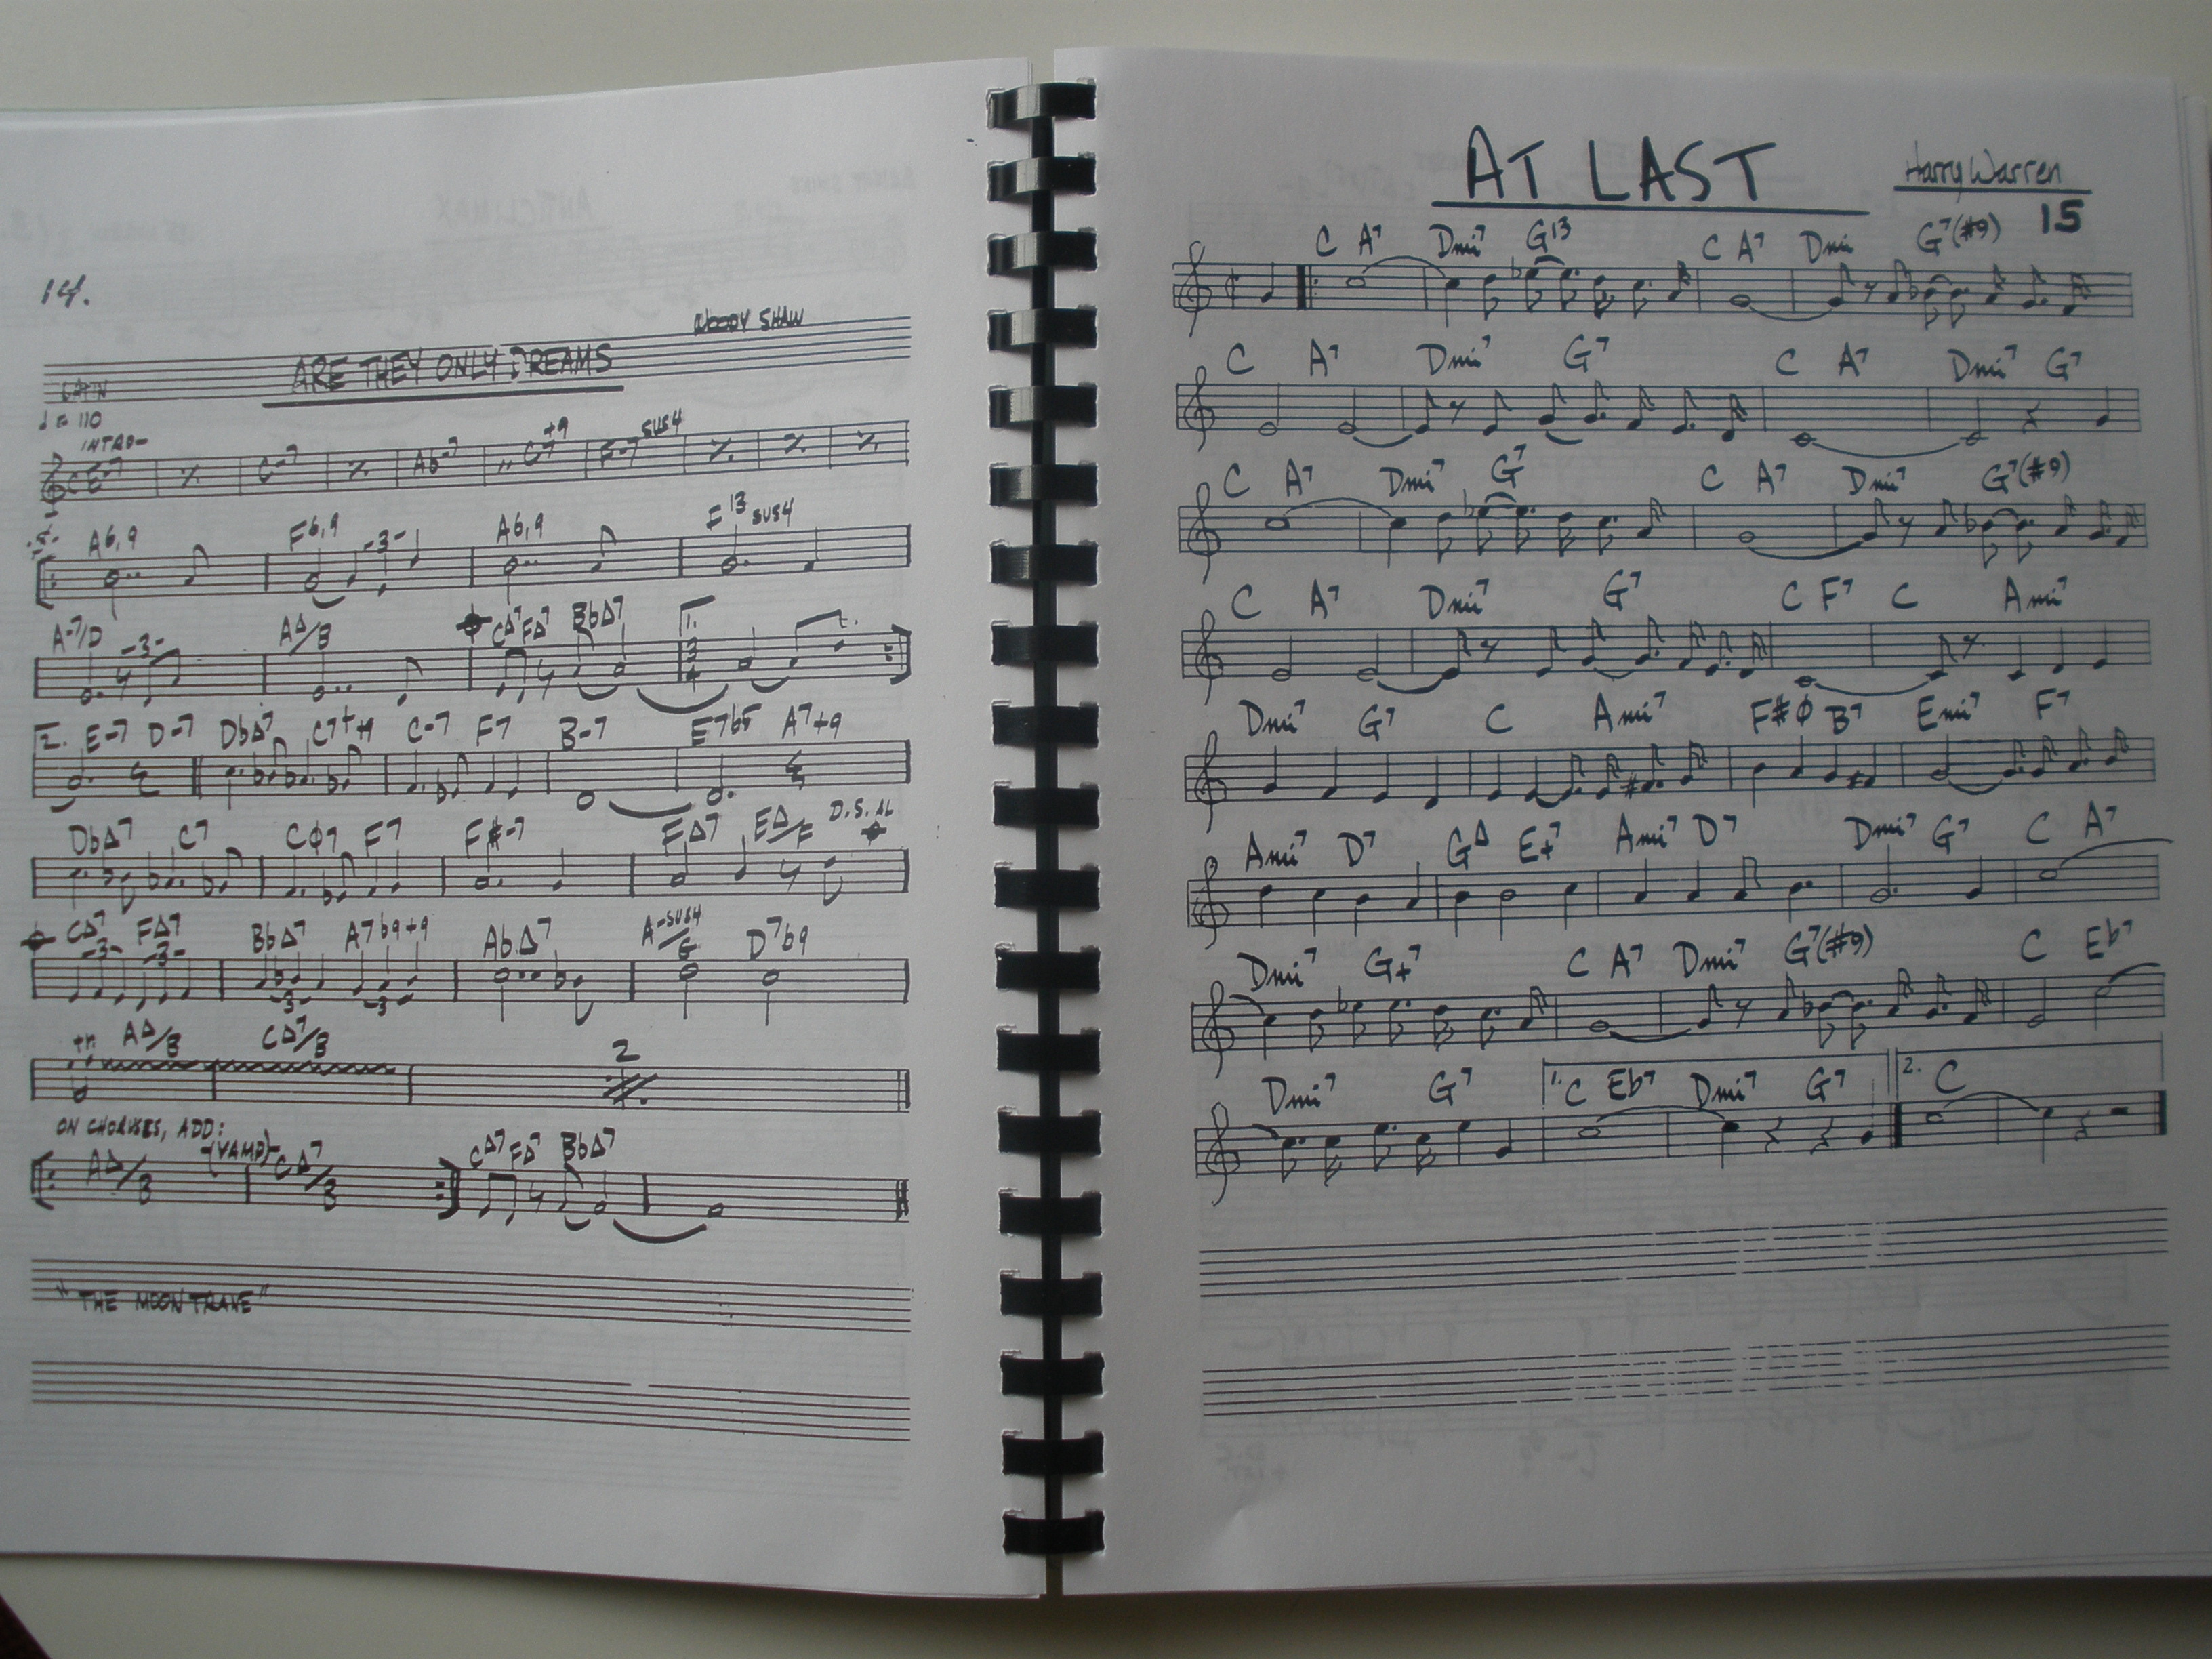 14.
WOODY SHAW
ARE THEY ONLY DREAMS
LATIN
♩= 110
INTRO-
C E-7 ٪ C-7 ٪ Ab-7 ,, C-7+9 F-7 SUS4 ٪ ٪ ٪
.S. A6,9 F6,9 -3- A6,9 F13 SUS4
A-7/D -3- AΔ/B CΔ7 FΔ7 BbΔ7 1.
3 3 4
2. E-7 D-7 DbΔ7 C7++9 C-7 F7 B-7 E7b5 A7+9
DbΔ7 C7 Cϕ7 F7 F#-7 FΔ7 EΔ/F D.S. AL
CΔ7 FΔ7 BbΔ7 A7b9+9 AbΔ7 A-SUS4/G D7b9
-3- -3- -3- -3-
tr AΔ/B CΔ7/B 2
ON CHORUSES, ADD:
(VAMP)-
AΔ/B CΔ7/B CΔ7 FΔ7 BbΔ7
"THE MOONTRANE"
AT LAST
Harry Warren
15
C A7 Dmi7 G13 C A7 Dmi G7(#9)
C A7 Dmi7 G7 C A7 Dmi7 G7
C A7 Dmi7 G7 C A7 Dmi7 G7(#9)
C A7 Dmi7 G7 C F7 C Ami7
Dmi7 G7 C Ami7 F#ϕ B7 Emi7 F7
Ami7 D7 GΔ E+7 Ami7 D7 Dmi7 G7 C A7
Dmi7 G+7 C A7 Dmi7 G7(#9) C Eb7
Dmi7 G7 1. C Eb7 Dmi7 G7 2. C